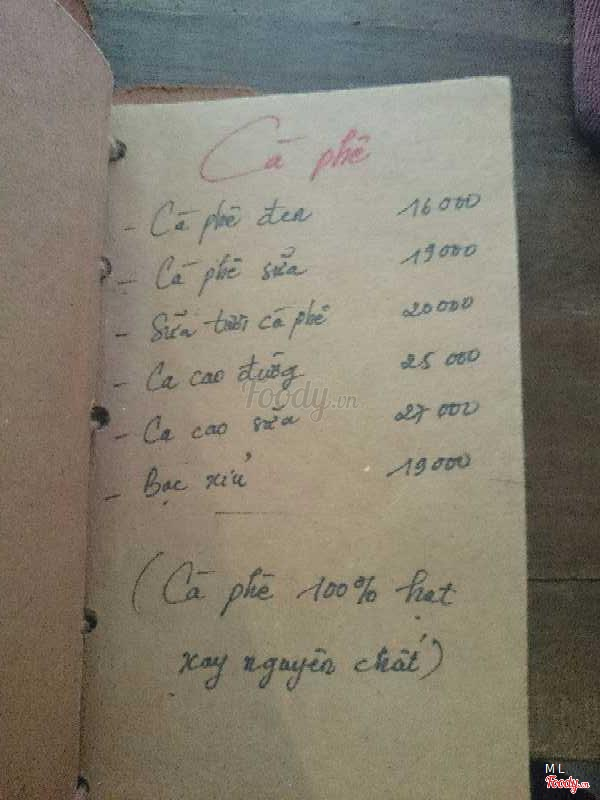 Cà phê
- Cà phê đen 16 000
- Cà phê sữa 19 000
- Sữa tươi cà phê 20 000
- Ca cao đường 25 000
- Ca cao sữa 27 000
- Bạc xỉu 19 000
(Cà phê 100% hạt
xay nguyên chất)
Foody.vn
ML
Foody.vn